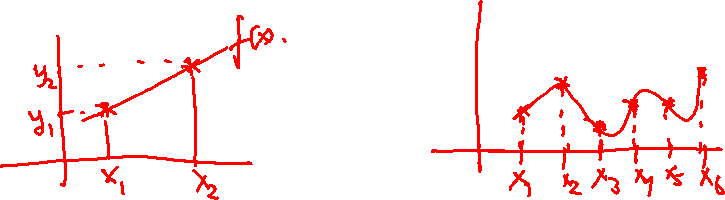 f(x).
y₂
y₁
x₁ x₂
x₁ x₂ x₃ x₄ x₅ x₆